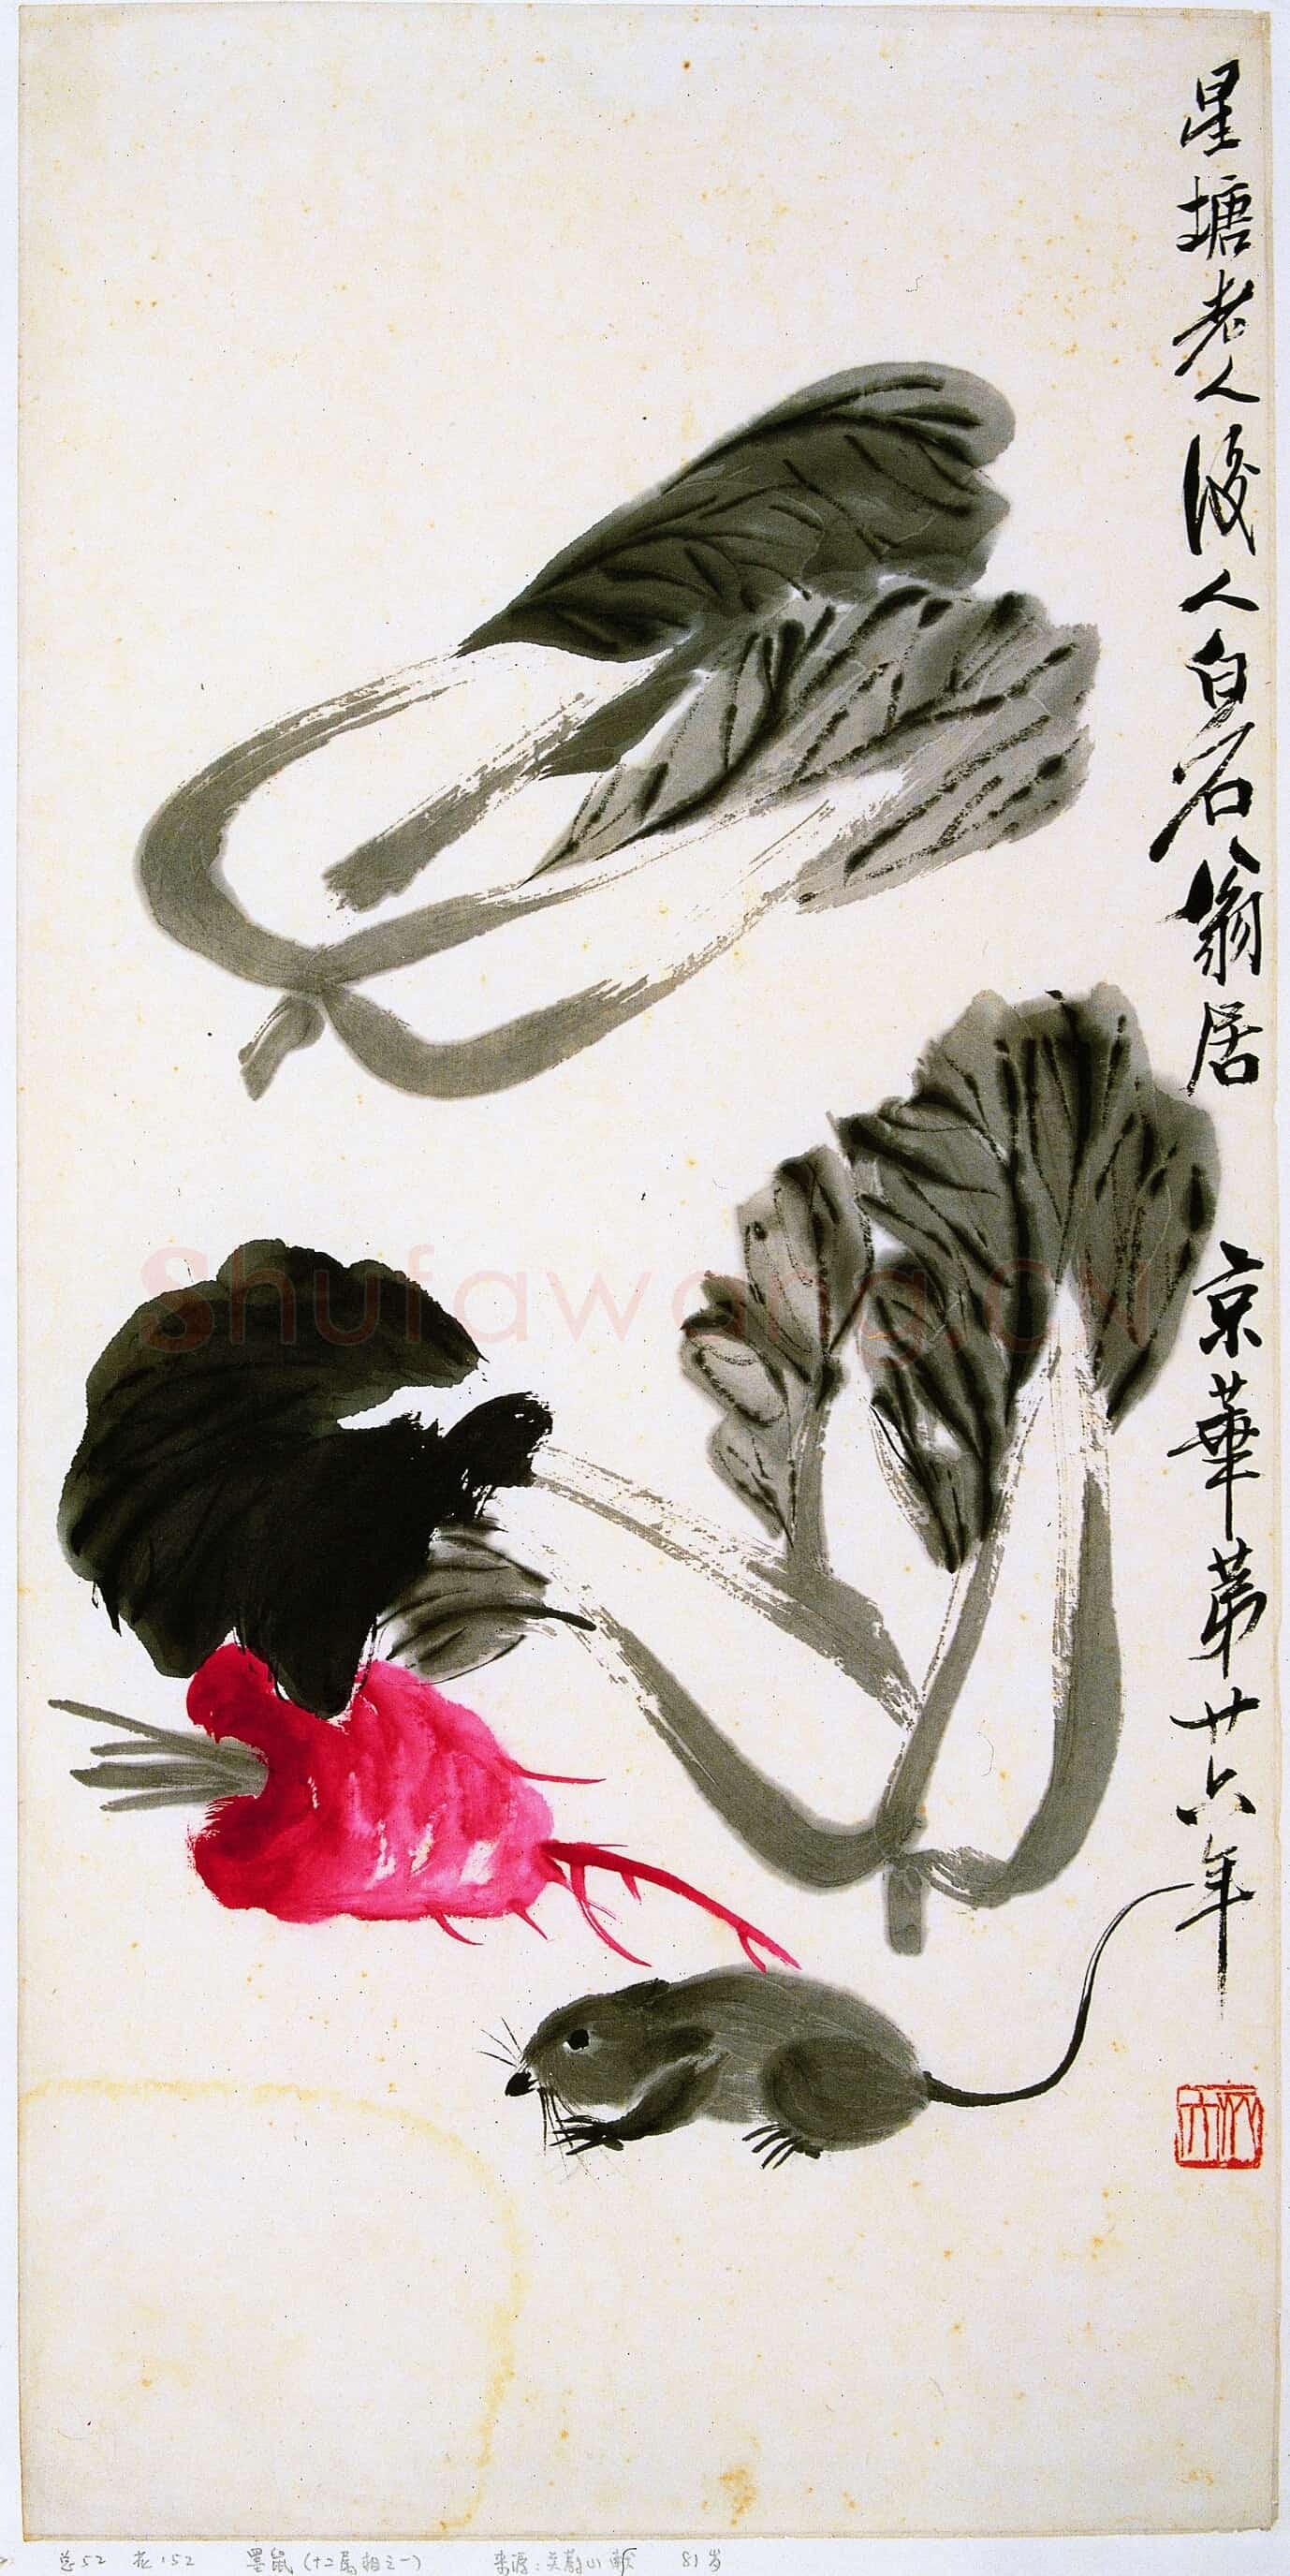 星塘老人後人白石翁居京華苐廿六年
木人
Shufawang.cn
总52 花152 墨鼠(十二属相之一) 来源: 81岁